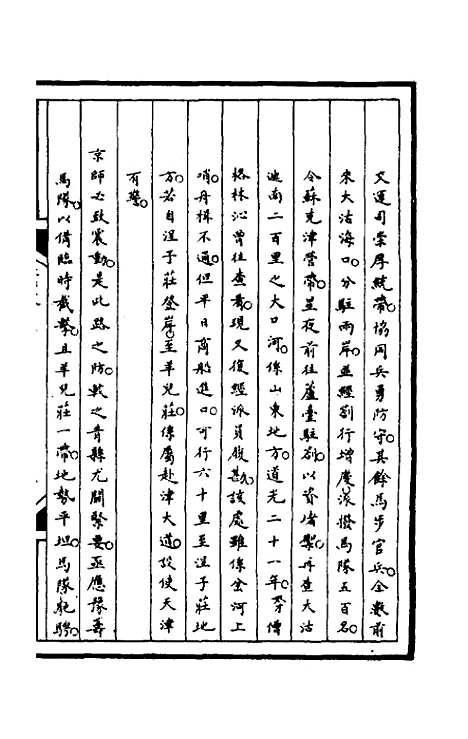 交運司崇厚統帶協同兵勇防守其餘馬步官兵全數前
來大沽海口分駐兩岸並經劄行增慶派撥馬隊五百名
令蘇克津營帶星夜前往蘆臺駐劄以資堵禦再查大沽
迤南二百里之大口河係山東地方道光二十一年僧
格林沁曾往查看現又復經派員履勘該處雖係岔河上
哨舟楫不通但平日商船進口可行六十里至湼子莊地
方若自湼子莊登岸至羊兒莊係屬赴津大道設使天津
有警
京師必致震動是此路之防較之青縣尤關緊要亟應豫籌
馬隊以備臨時截擊且羊兒莊一帶地勢平坦馬隊馳騁